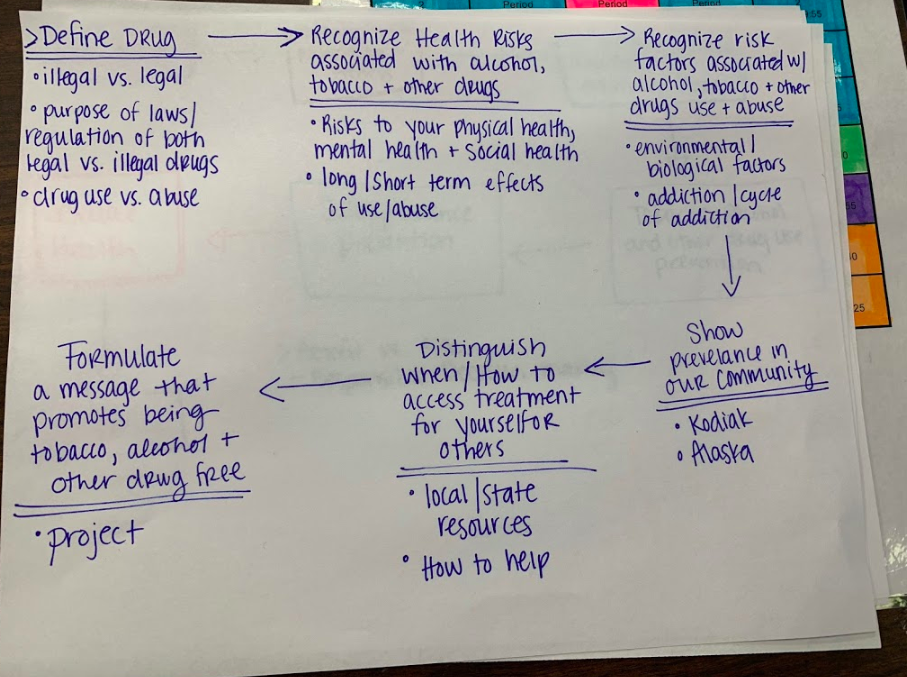 >Define DRUG
•illegal vs. legal
•purpose of laws/
regulation of both
legal vs. illegal drugs
•drug use vs. abuse
Recognize Health Risks
associated with alcohol,
tobacco + other drugs
•Risks to your physical health,
mental health + Social health
•long/Short term effects
of use/abuse
Recognize risk
factors associated w/
alcohol, tobacco + other
drugs use + abuse
•environmental/
biological factors
•addiction/cycle
of addiction
Show
prevelance in
our community
•Kodiak
•Alaska
Distinguish
when/How to
access treatment
for yourself or
others
•local/state
resources
•How to help
Formulate
a message that
promotes being
tobacco, alcohol +
other drug free
•project
2
Period
Period
Period
25